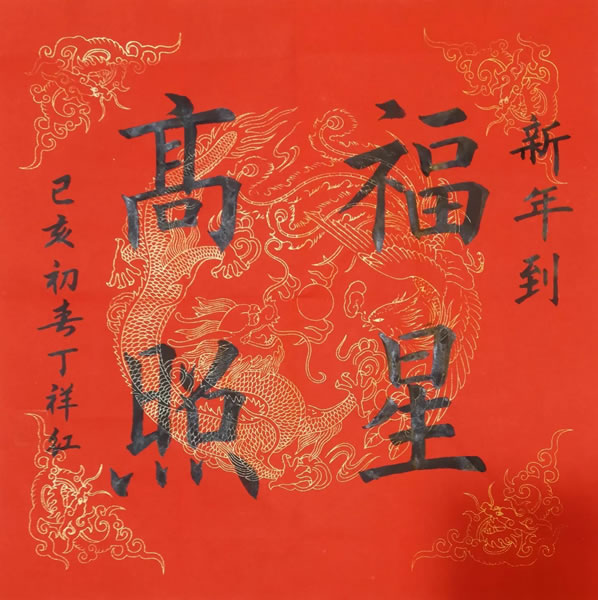 新年到
福星
高照
己亥初春丁祥红